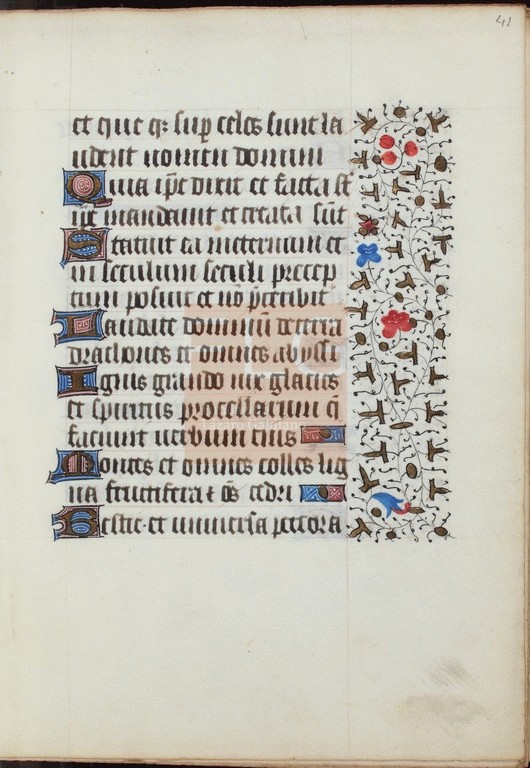 41
et que q: sup celos sunt la
udent nomen domini
Quia ip̄e dixit et facta st̄
ip̄e mandauit et creata sūt
Statuit ea in eternum et
in seculum seculi precep
tum posuit et nō p̄teribit
Laudate dominū de terra
drachones et omnes abyssi
Ignis grando nix glacies
et spiritus procellarum q̄
faciunt uerbum eius
Lázaro Galdiano
Montes et omnes colles lig
na fructifera ⁊ oēs cedri
Bestie et uniuersa peccora